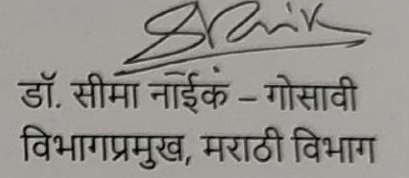 डॉ. सीमा नाईक – गोसावी
विभागप्रमुख, मराठी विभाग